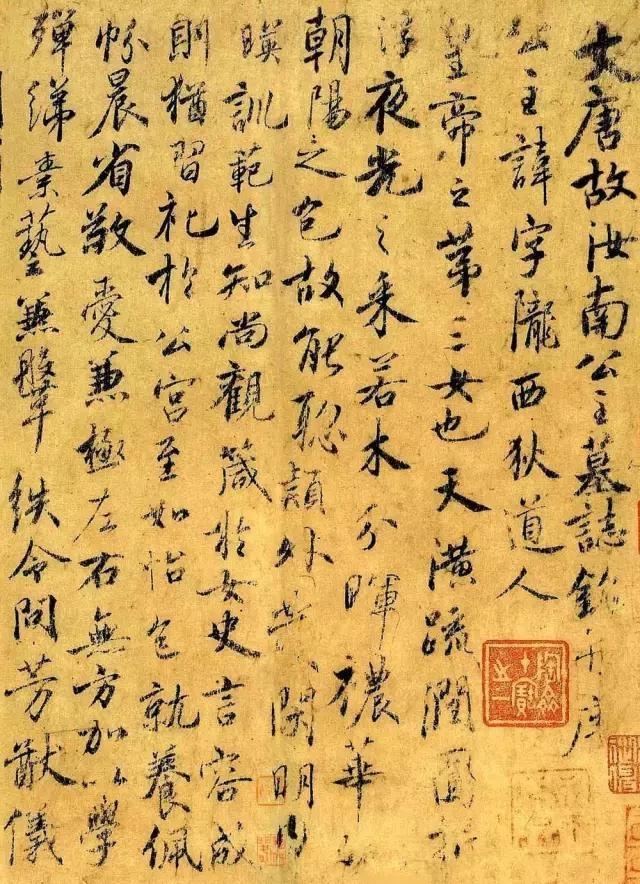 大唐故汝南公主墓誌銘并序
公主諱字隴西狄道人
皇帝之第三女也天潢疏潤圓折
浮夜光之采若木分暉襛華
朝陽之色故能聡穎外發閑明內
暎訓範生知尚觀箴於女史言容成
則猶習礼於公宮至如怡色就養佩
帉晨省敬愛兼極左右無方加以學
殫綈素藝兼鞶紩令問芳猷儀